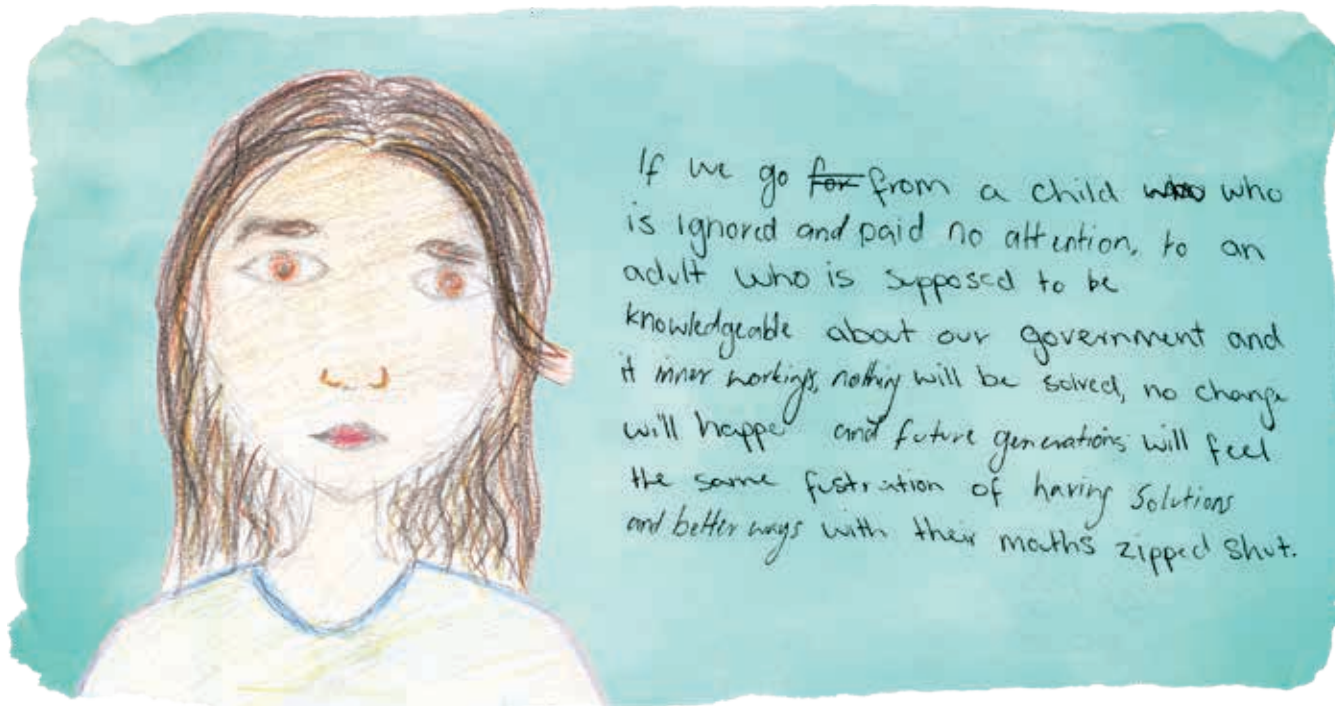 If we go for from a child who who
is ignored and paid no attention, to an
adult who is supposed to be
knowledgeable about our government and
it inner workings, nothing will be solved, no change
will happe and future generations will feel
the same fustration of having solutions
and better ways with their mouths zipped shut.